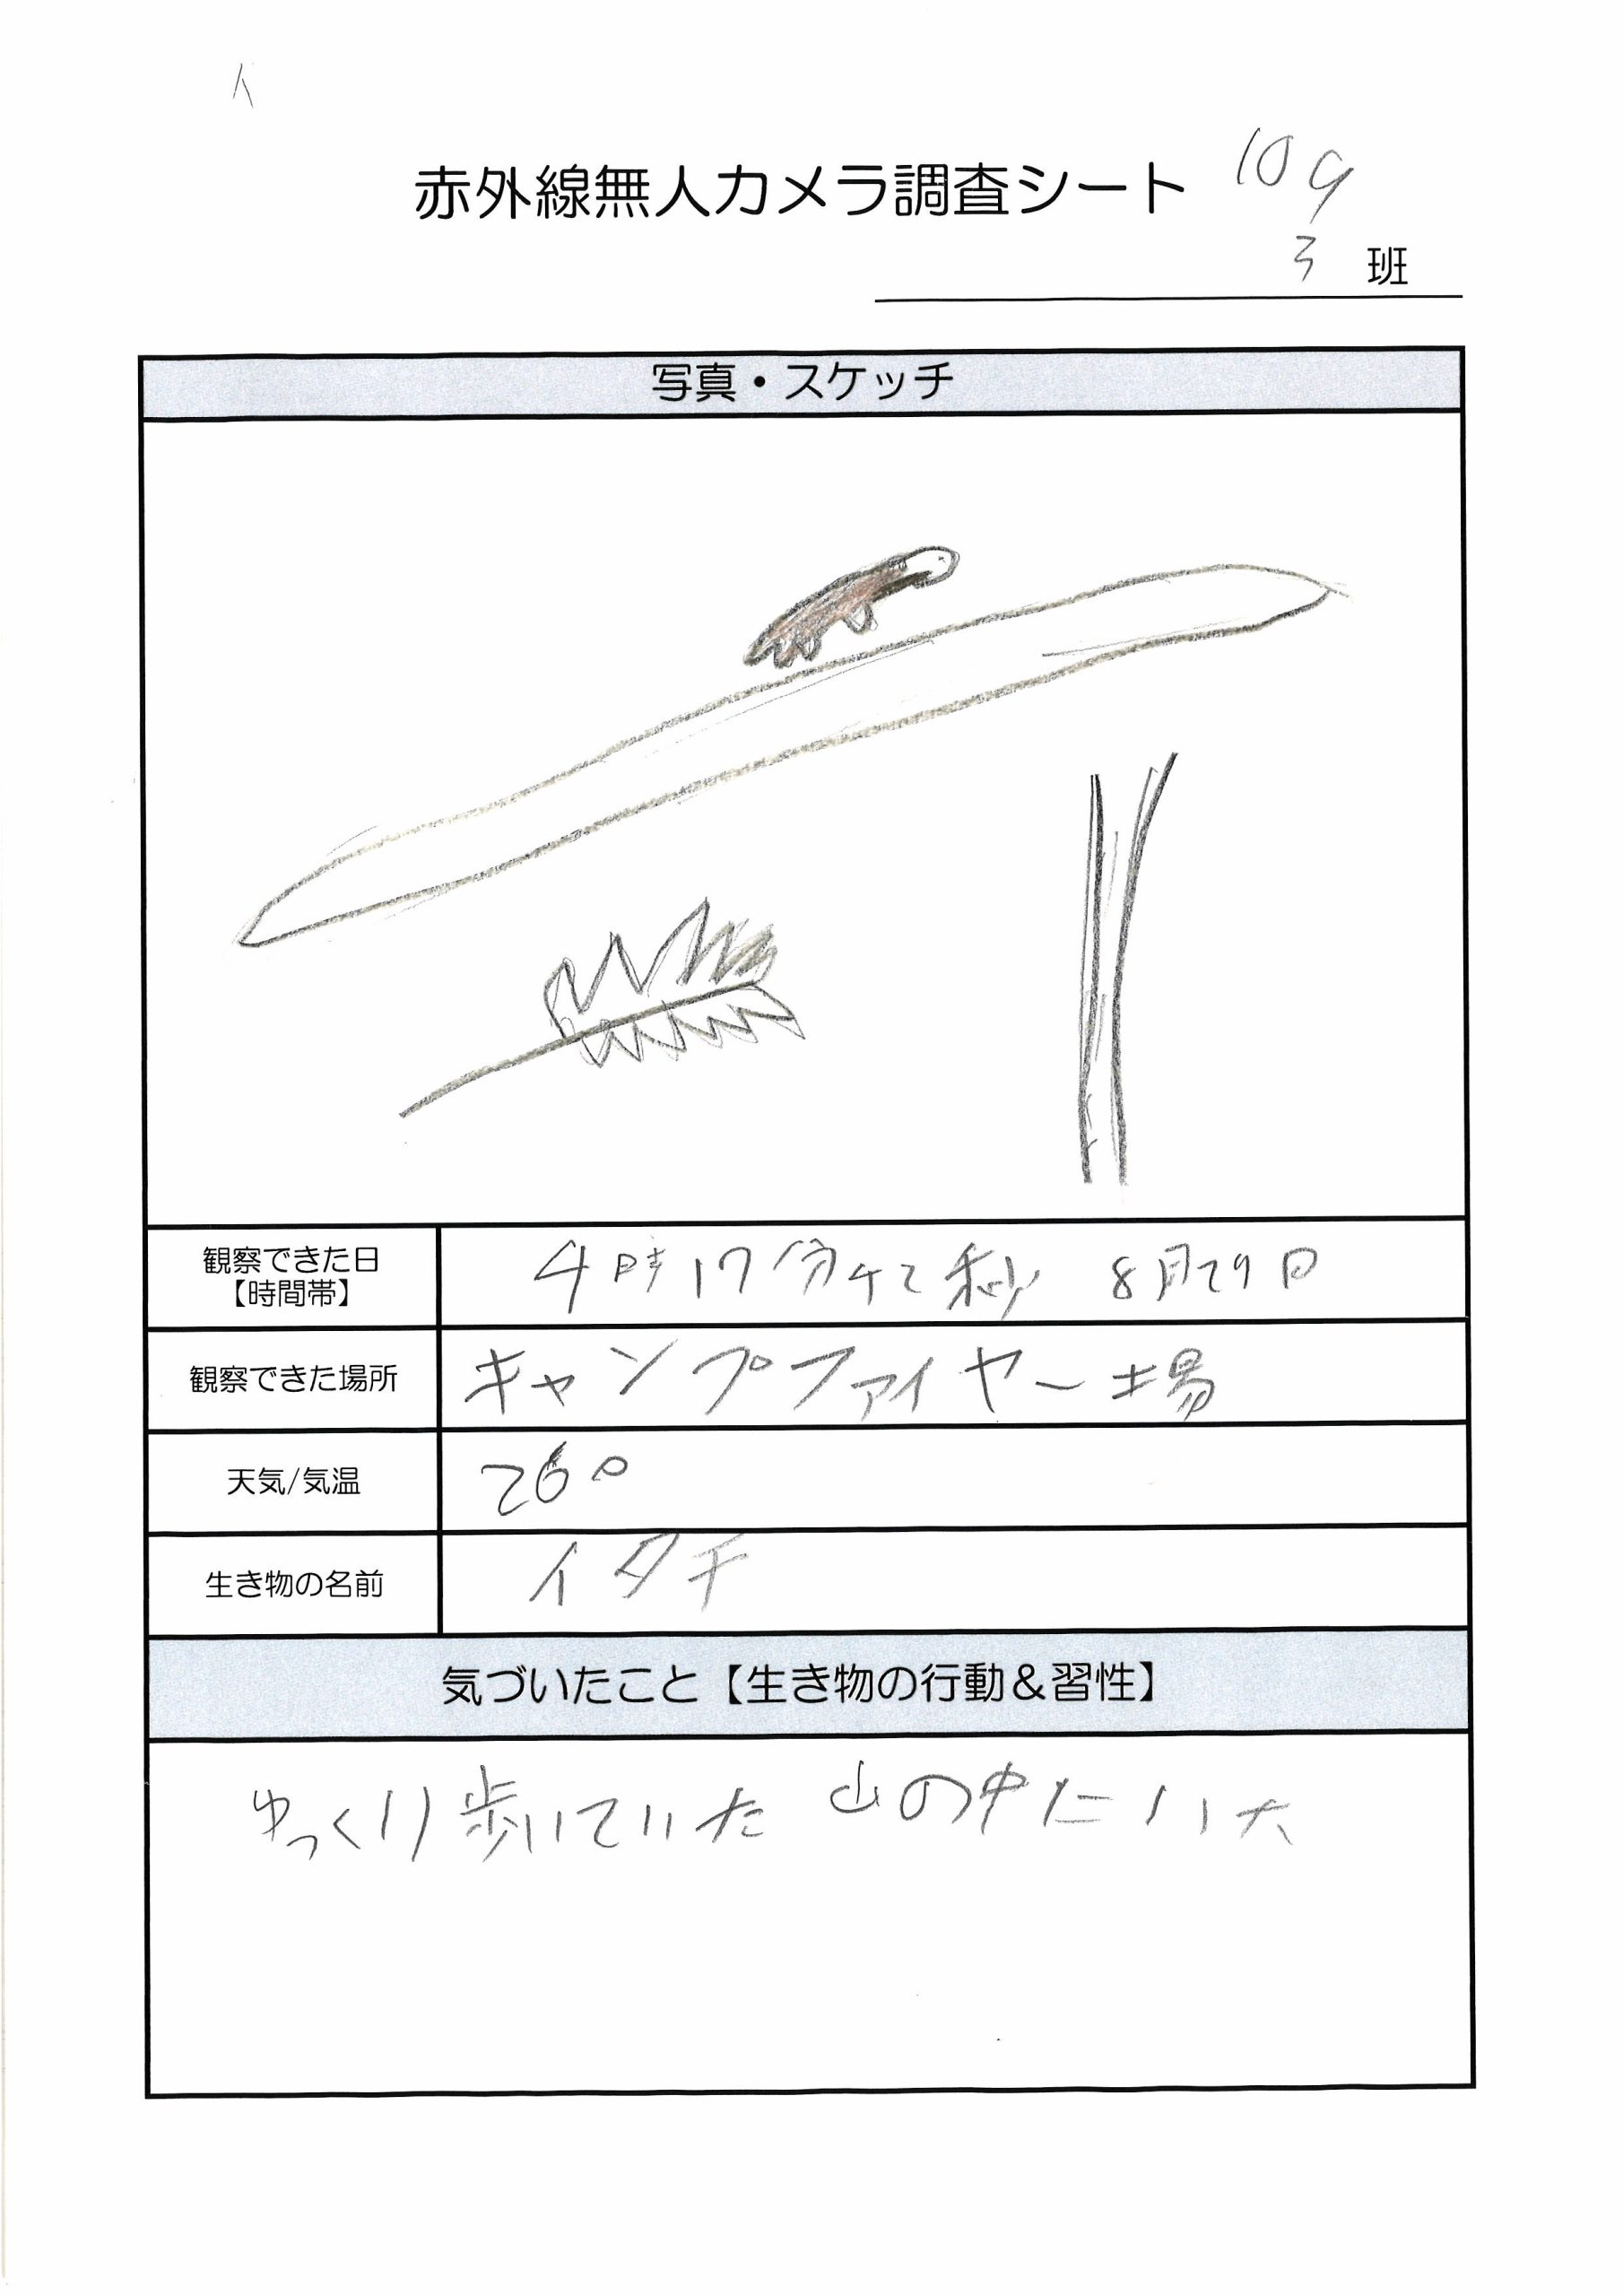 赤外線無人カメラ調査シート 109
3 班
写真・スケッチ
観察できた日
【時間帯】
4時17分42秒 8月29日
観察できた場所
キャンプファイヤー場
天気/気温
26°
生き物の名前
イタチ
気づいたこと【生き物の行動&習性】
ゆっくり歩いていた 山の中にいた